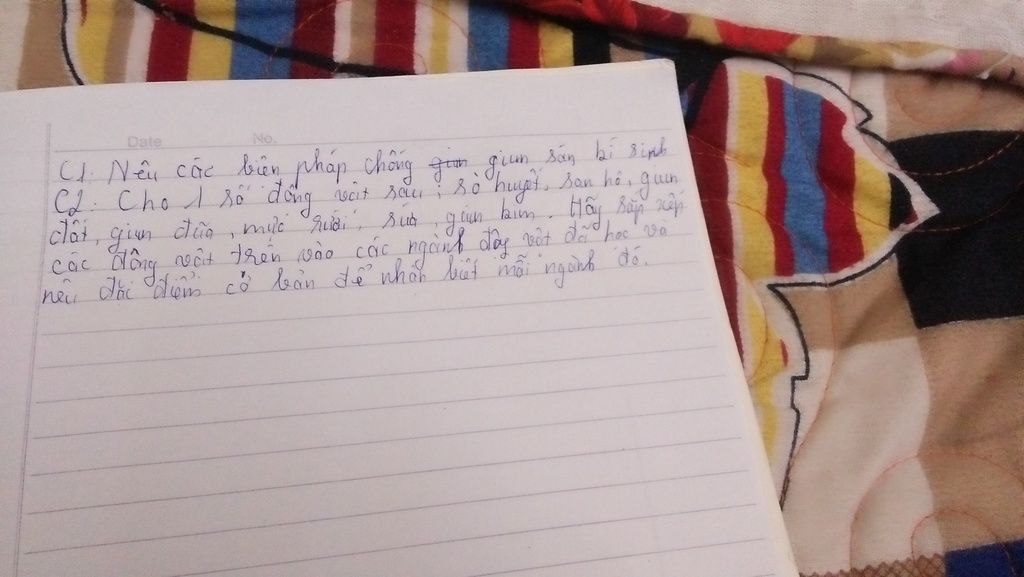 Date No.
C1. Nêu các biện pháp chống giun sán kí sinh
C2. Cho 1 số động vật sau: sò huyết, san hô, giun
đất, giun đũa, mực, rươi, sứa, giun kim. Hãy sắp xếp
các động vật trên vào các ngành động vật đã học và
nêu đặc điểm cơ bản để nhận biết mỗi ngành đó.